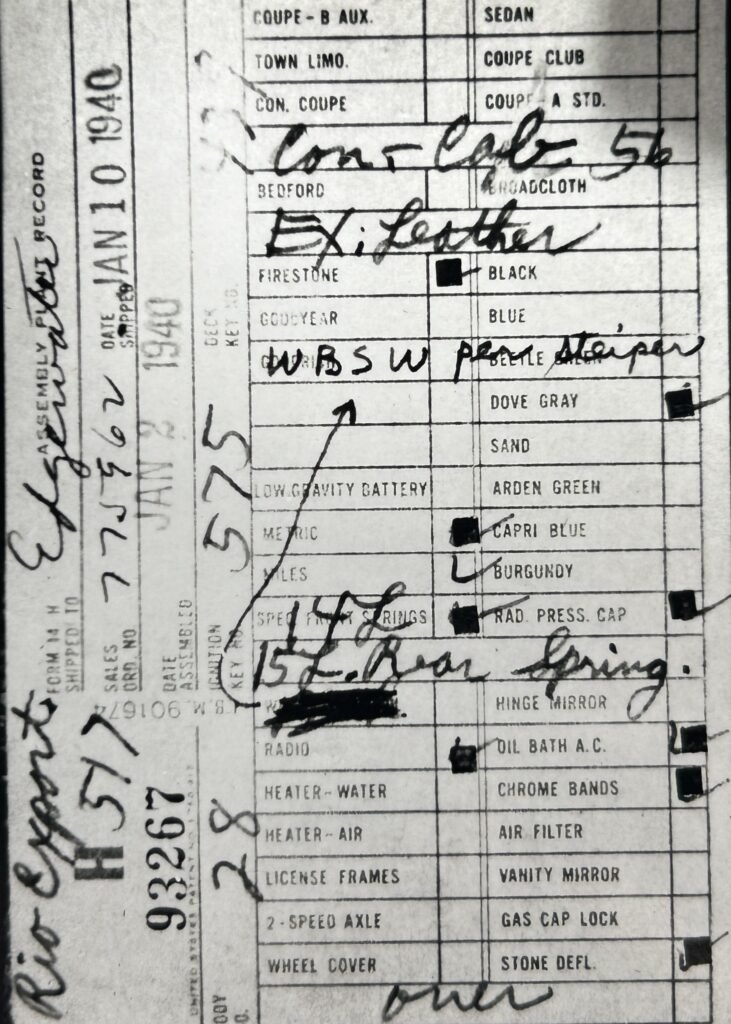 COUPE-B AUX. SEDAN
TOWN LIMO. COUPE CLUB
CON. COUPE COUPE-A STD.
Con-Cab 56
BEDFORD BROADCLOTH
EX: Leather
FIRESTONE BLACK
GOODYEAR BLUE
WBSW per
BEETLE GREEN
DOVE GRAY
SAND
LOW GRAVITY BATTERY ARDEN GREEN
METRIC CAPRI BLUE
MILES BURGUNDY
SPEC. FRONT SPRINGS RAD. PRESS. CAP
14 L
15 L. Rear Spring.
HINGE MIRROR
RADIO OIL BATH A.C.
HEATER-WATER CHROME BANDS
HEATER-AIR AIR FILTER
LICENSE FRAMES VANITY MIRROR
2-SPEED AXLE GAS CAP LOCK
WHEEL COVER STONE DEFL.
over
ASSEMBLY PLANT RECORD
FORM 14 H
SHIPPED TO Edgewater
Rio Export
SALES ORD. NO 775962
DATE SHIPPED JAN 10 1940
H 517
DATE ASSEMBLED JAN 2 1940
I.B.M. 901674
93267
DECK KEY NO.
IGNITION KEY NO. 575
BODY NO. 28